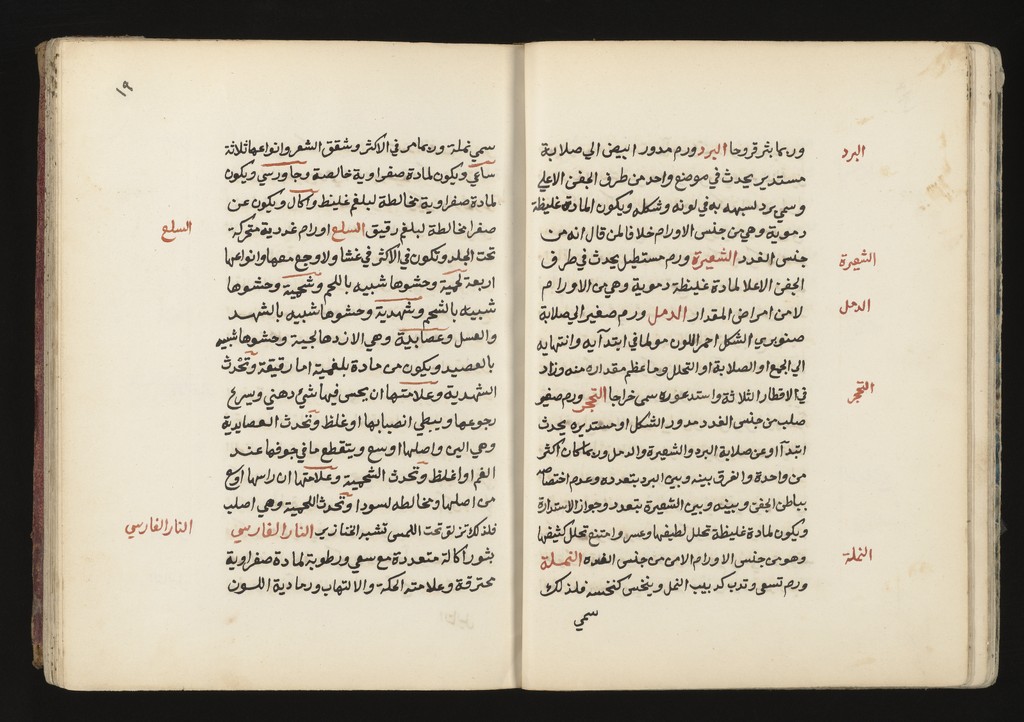 وربما بثر قروحا البرد ورم مدور ابيض الي صلابة
مستدير يحدث في موضع واحد من طرف الجفن الاعلي
وسمي برد لسبهه به في لونه وشكله ويكون المادة غليظة
دموية وهي من جنس الاورام خلافا لمن قال انه من
جنس الغدد الشعيرة ورم مستطيل يحدث في طرف
الجفن الاعلا لمادة غليظة دموية وهي من الاورام
لا من امراض المقدار الدمل ورم صغير الي صلابة
صنوبري الشكل احمر اللون مولما في ابتدآيه وانتهايه
الي الجمع او الصلابة او التحلل وما عظم مقداره منه وزاد
في الاقطار الثلاثة واستدعوره سمي خراجا التحجر ورم صغير
صلب من جنس الغدد مدور الشكل او مستديره يحدث
ابتدآ اوعن صلابة البرد والشعيرة والدمل وربما كان اكثر
من واحدة والفرق بينه وبين البرد بتعدده وعدم اختصاصه
بباطن الجفن وبينه وبين الشعيرة بتعدد وجواز الاستدارة
ويكون لمادة غليظة تحلل لطيفها وعسر وامتنع تحلل كثيفها
وهو من جنس الاورام الا من جنس الغدد النملة
ورم تسعي وتدب كدبيب النمل وينخس كنخسه فلذلك
سمي
البرد
الشعيرة
الدمل
التحجر
النملة
١٩
سمي نملة وربما مر في الاكثر وشقق الشعر وانواعها ثلاثة
ساعي ويكون لمادة صفراوية خالصة وجاورسي ويكون
لمادة صفراوية مخالطة لبلغم غليظ واكال ويكون عن
صفرا مخالطة لبلغم رقيق السلع اورام غددية متحركة
تحت الجلد وتكون في الاكثر في غشا ولا وجع معها وانواعها
اربعة لحمية وحشوها شبيه باللحم وشحمية وحشوها
شبيه بالشحم وشهدية وحشوها شبيه بالشهد
والعسل وعصابية وهي الازدهالجية وحشوها شبيه
بالعصيد ويكون من مادة بلغمية اما رقيقة وتحدث
الشهدية وعلامتها ان يحس فيها شي دهني ويسرع
رجوعها ويبطي انصبابها او غلظ وتحدث العصايدية
وهي الين واصلها اوسع ويتقطع ما في جوفها عند
الغمز او اغلظ وتحدث الشحمية وعلامتها ان راسها اوسع
من اصلها ومخالطه لسودا وتحدث اللحمية وهي اصلب
فلذلك تزلق تحت اللمس تشبه الخنازير النار الفارسي
بثور اكالة متعددة مع سعي ورطوبة لمادة صفراوية
محترقة وعلامته الحكة والالتهاب ورمادية اللون
السلع
النار الفارسي